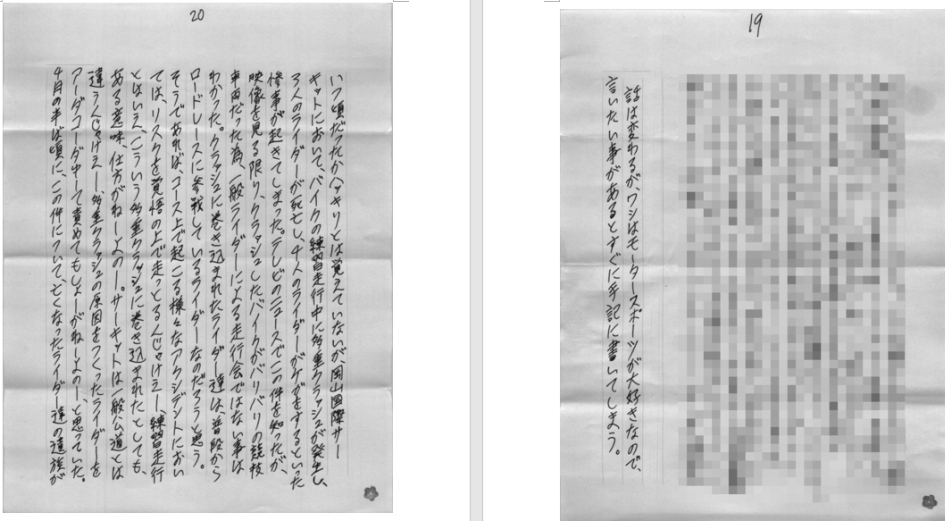 19
話は変わるが、ワシはモータースポーツが大好きなので、
言いたい事があるとすぐに手記に書いてしまう。
20
いつ頃だったかハッキリとは覚えていないが、岡山国際サー
キットにおいて、バイクの練習走行中に多重クラッシュが発生し、
3人のライダーが死亡し、4人のライダーがケガをするといった
惨事が起きてしまった。テレビのニュースでこの件を知ったが、
映像を見る限り、クラッシュしたバイクがバリバリの競技
車両だった為、一般ライダーによる走行会ではない事は
わかった。クラッシュに巻き込まれたライダー達は普段から
ロードレースに参戦しているライダーなのだろうと思う。
そうであれば、コース上で起こる様々なアクシデントにおい
ては、リスクを覚悟の上で走っとるんじゃけえー、練習走行
とはいえ、こういう多重クラッシュに巻き込まれたとしても、
ある意味、仕方がねーよのー。サーキットは一般公道とは
違うんじゃけえー、多重クラッシュの原因をつくったライダーを
アーダコーダ中って責めてもしょーがねーよのー、と思っていた。
4月の半ば頃に、この件について、亡くなったライダー達の遺族が